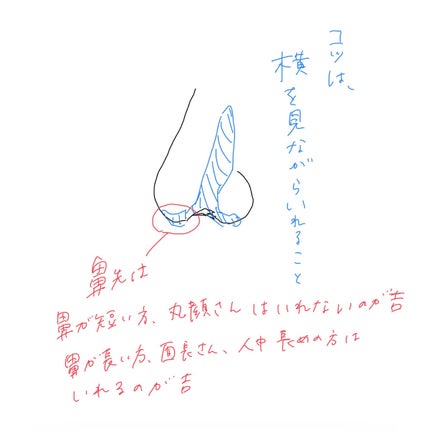 コツは、
横を見ながらいれること
鼻先は
鼻が短い方、丸顔さんはいれないのが吉
鼻が長い方、面長さん、人中長めの方は
いれるのが吉